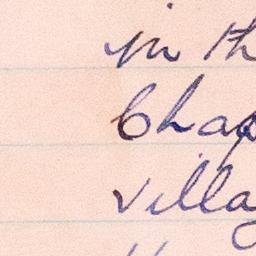 in th
Chap
villag